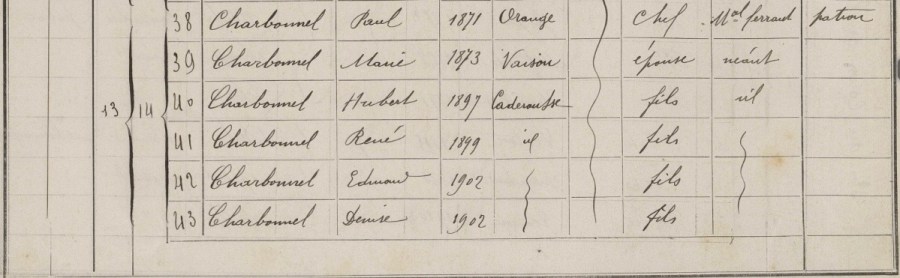 38 Charbonnel Paul 1871 Orange chef Mal ferrant patron
39 Charbonnel Marie 1873 Vaison épouse néant
13 14 40 Charbonnel Hubert 1897 Caderousse fils id
41 Charbonnel René 1899 id fils
42 Charbonnel Edmond 1902 fils
43 Charbonnel Denise 1902 fils